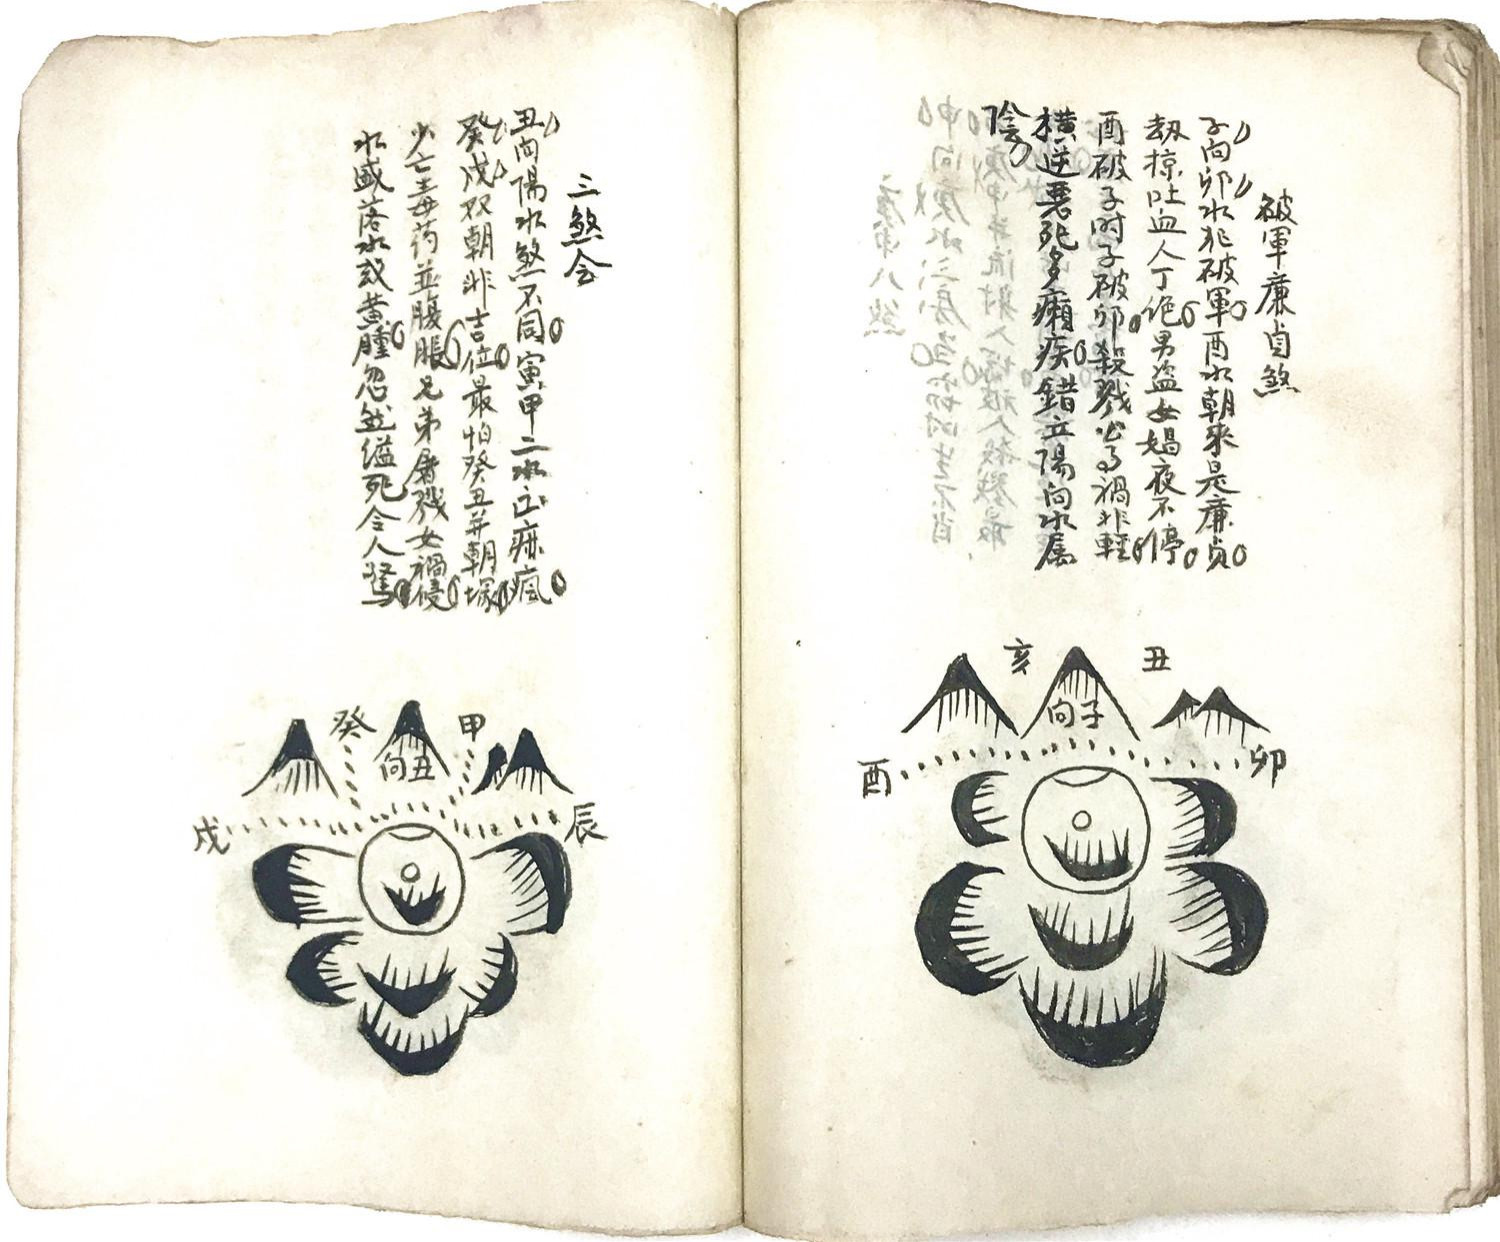 破軍廉貞煞
子向卯水犯破軍酉水朝來是廉貞
劫掠吐血人丁絶男盗女娼夜不停
酉破子时子破卯殺戮公事禍非輕
横逆悪死多癩疾錯立陽向水属
陰
亥
丑
向子
酉
卯
三煞会
丑向陽水煞不同寅甲二水出痳瘋
癸戌双朝非吉位最怕癸丑并朝塚
少亡毒药並腹脹兄弟屠残女禍侵
水盛落水或黄腫忽然縊死令人驚
癸
甲
向丑
戌
辰